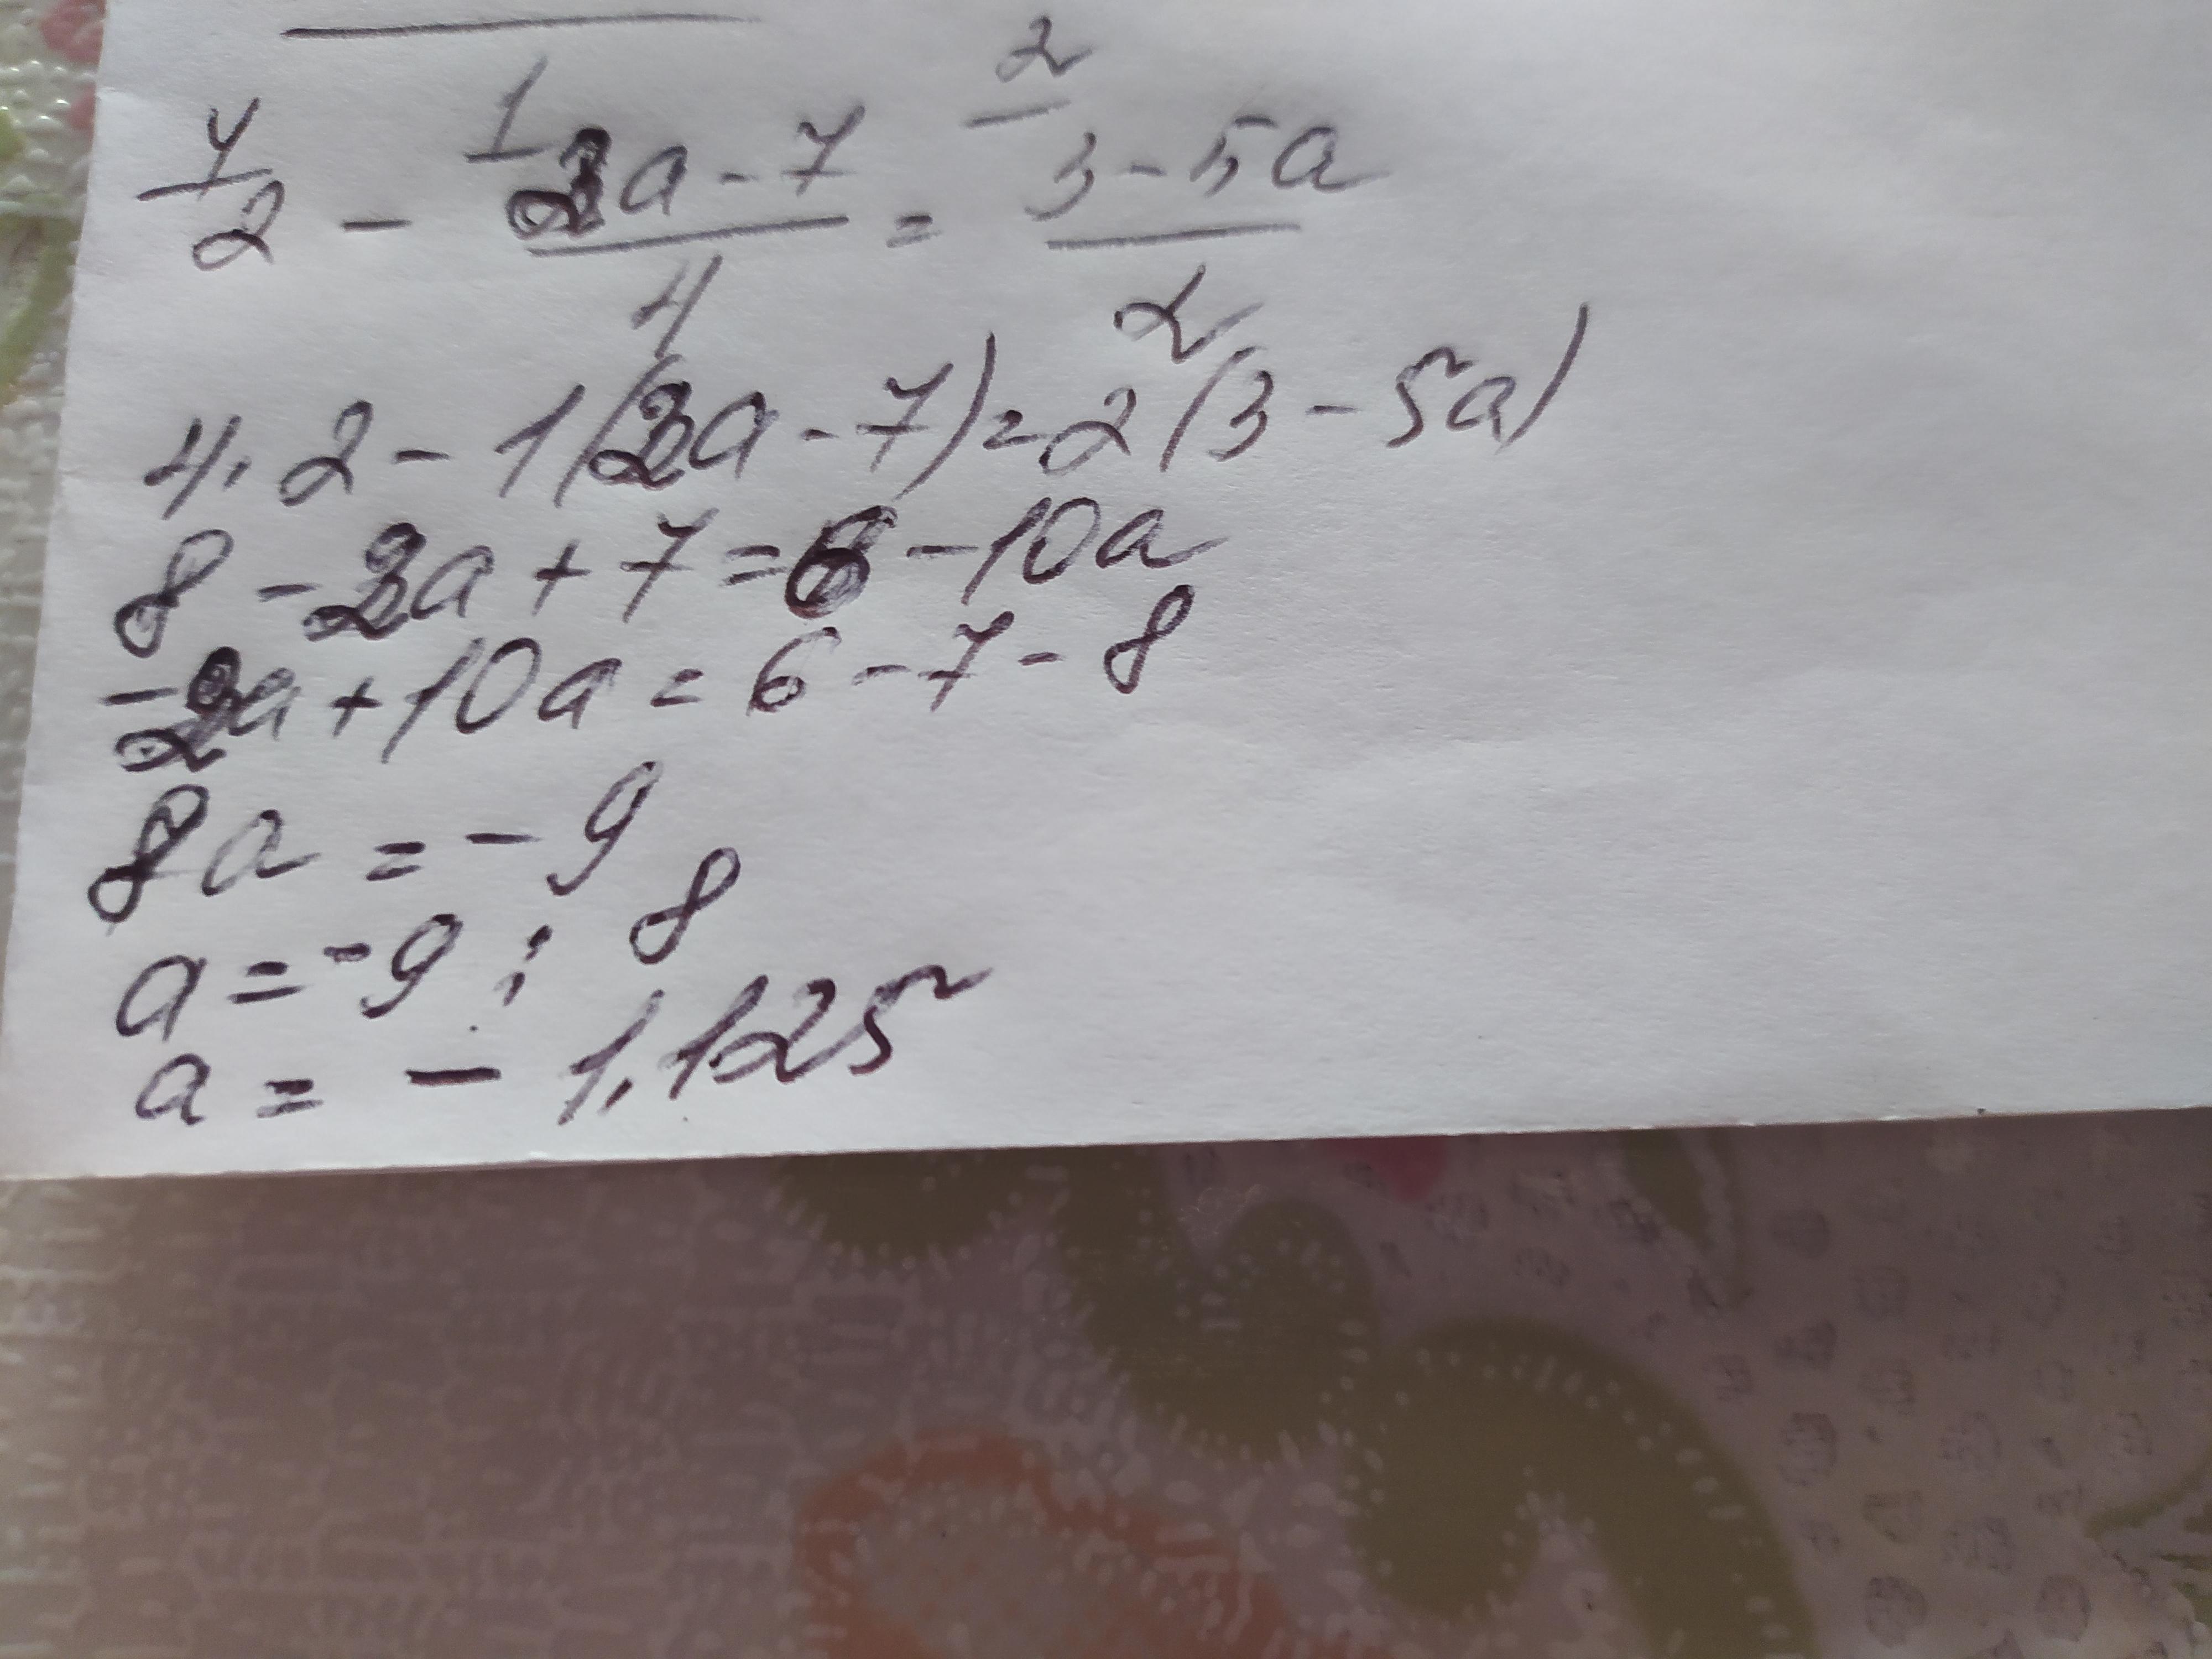 4/2 - 1/(2a - 7)/4 = 2/(3 - 5a)/2
4 · 2 - 1(2a - 7) = 2(3 - 5a)
8 - 2a + 7 = 6 - 10a
-2a + 10a = 6 - 7 - 8
8a = - 9
a = -9 : 8
a = - 1,125